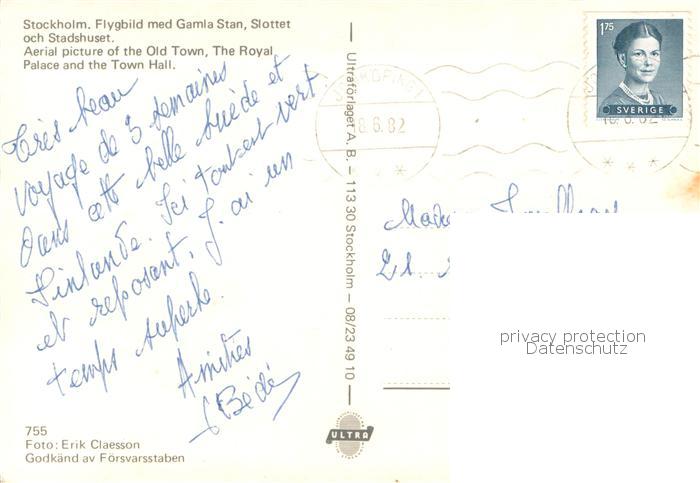 Stockholm. Flygbild med Gamla Stan, Slottet
och Stadshuset.
Aerial picture of the Old Town, The Royal
Palace and the Town Hall.
Très beau
voyage de 3 semaines
dans cette belle Suède et
Finlande. Ici tout est vert
et reposant, j'ai un
temps superbe.
Amitiés
Bédé
755
Foto: Erik Claesson
Godkänd av Försvarsstaben
Ultraförlaget A. B. – 113 30 Stockholm – 08/23 49 10
ULTRA
175
SVERIGE
18.6.82
18.6.82
privacy protection
Datenschutz